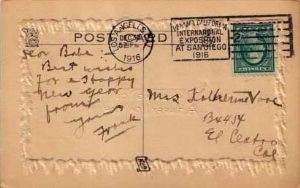 POST CARD
LOS ANGELES, CAL.
DEC
1916
CALIFORNIA
INTERNATIONAL
EXPOSITION
AT SAN DIEGO
1916
Dear Babe:
Best wishes
for a Happy
New Year
from
Yours
Frank
Miss Katherine
Box 484
El Centro
Cal